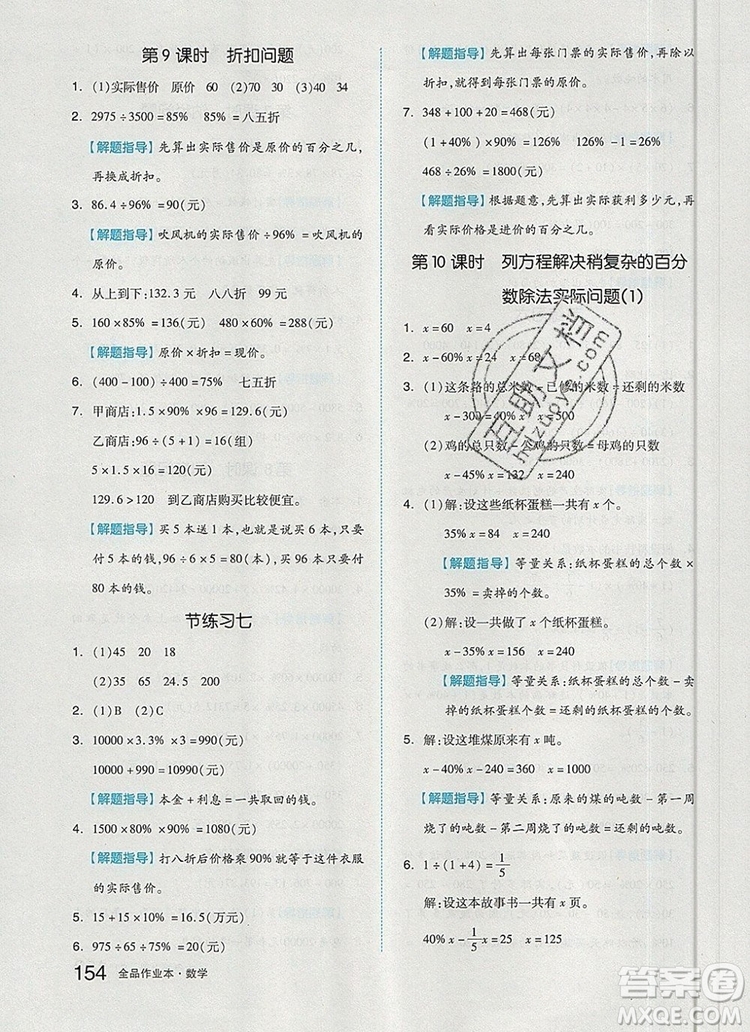 第9课时 折扣问题
1. (1)实际售价 原价 60 (2)70 30 (3)40 34
2. 2975÷3500=85% 85%=八五折
【解题指导】先算出实际售价是原价的百分之几,
再换成折扣。
3. 86.4÷96%=90(元)
【解题指导】吹风机的实际售价÷96%=吹风机的
原价。
4. 从上到下:132.3元 148元
5. 160×85%=136(元) 480×60%=288(元)
【解题指导】原价×折扣=现价。
6. (400-100)÷400=75% 七五折
7. 甲商店:1.5×90%×96=129.6(元)
乙商店:96÷(5+1)=16(组)
5×1.5×16=120(元)
129.6>120 到乙商店购买比较便宜。
【解题指导】买5本送1本,就是买6本,只要
付5本的钱,96÷6×5=80(本),买96本只要付
80本的钱。
节练习七
1. (1)45 20 18
(2)65 35 24.5 200
2. (1)B (2)C
3. 10000×3.3%×3=990(元)
10000+990=10990(元)
【解题指导】本金+利息=一共取回的钱。
4. 1500×80%×90%=1080(元)
【解题指导】打八折后价格乘90%就等于这件衣服
的实际售价。
5. 15+15×10%=16.5(万元)
6. 975÷65%=1500(元)
154 全品作业本·数学
【解题指导】先算出每张门票的实际售价,再除以
折扣,就能算出每张门票的原价。
7. 348+100+20=468(元)
(1+40%)×90%=126%
468÷26%=1800(元)
【解题指导】根据题意,先算出实际获利多少元,再
看实际价格是进价的百分之几。
第10课时 列方程解决稍复杂的百分
数除法实际问题(1)
1. x=60 x=4
2. x-60%x=24 x=60
3. (1)这条路的总米数-已修的米数=还剩的米数
x-30%x=350 x=500
(2)鸡的总只数-公鸡的只数=母鸡的只数
x-45%x=132 x=240
4. (1)解:设这些纸杯蛋糕共有x个。
35%x=84 x=240
【解题指导】等量关系:纸杯蛋糕的总个数×
35%=卖掉的个数。
(2)解:设一共做了x个纸杯蛋糕。
x-35%x=156 x=240
【解题指导】等量关系:纸杯蛋糕的总个数-卖
掉的纸杯蛋糕个数=还剩的纸杯蛋糕个数。
5. 解:设这堆煤原来有x吨。
x-40%x-20%x=360 x=900
【解题指导】等量关系:原来的煤的吨数-第一周
烧了的吨数-第二周烧了的吨数=还剩的吨数。
6. 1÷(1+4)=1/5
解:设这本故事书一共有x页。
40%x-1/5x=25 x=125
互助文档
hdzuoye.com
答案圈
MXQE.COM